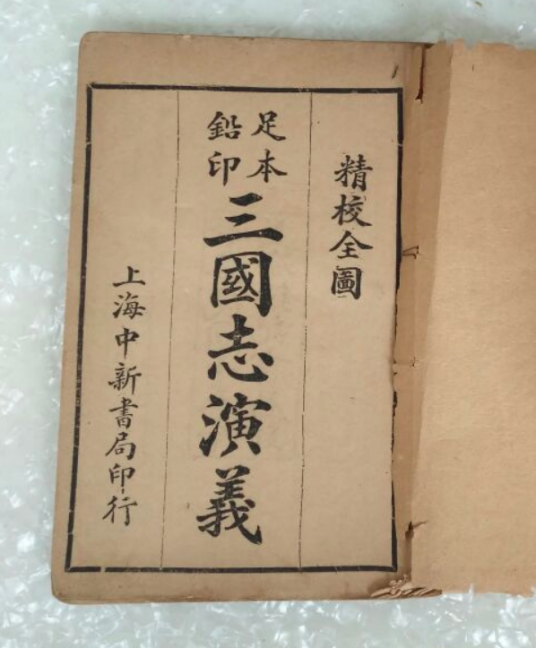 精校全圖
足本
鉛印
三國志演義
上海中新書局印行